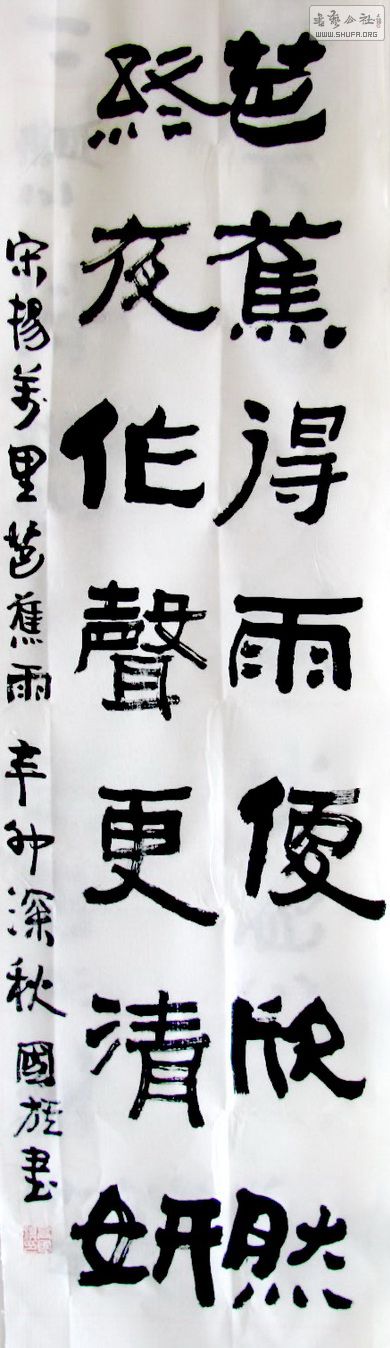 芭蕉得雨便欣然
終夜作聲更清妍
宋楊萬里芭蕉雨 辛卯深秋 國旌書
書藝公社
WWW.SHUFA.ORG